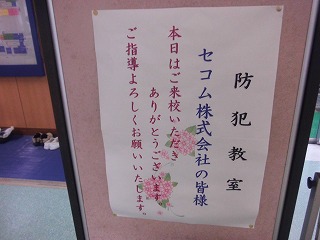 防犯教室
セコム株式会社の皆様
本日はご来校いただき
ありがとうございます
ご指導よろしくお願いいたします。